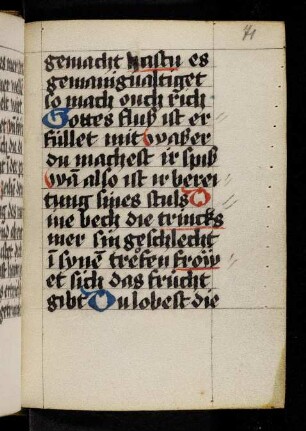 71
gemacht hastu es
gemanigualtiget
so mach ouch rich
Gottes fluß ist er
füllet mit waßer
du machest ir spiß
wā also ist ir berei
tung sines stuls D
ine bech die trincks
mer sin geschlecht
ī synē trefen fröiw
et sich das frücht
gibt Du lobest die